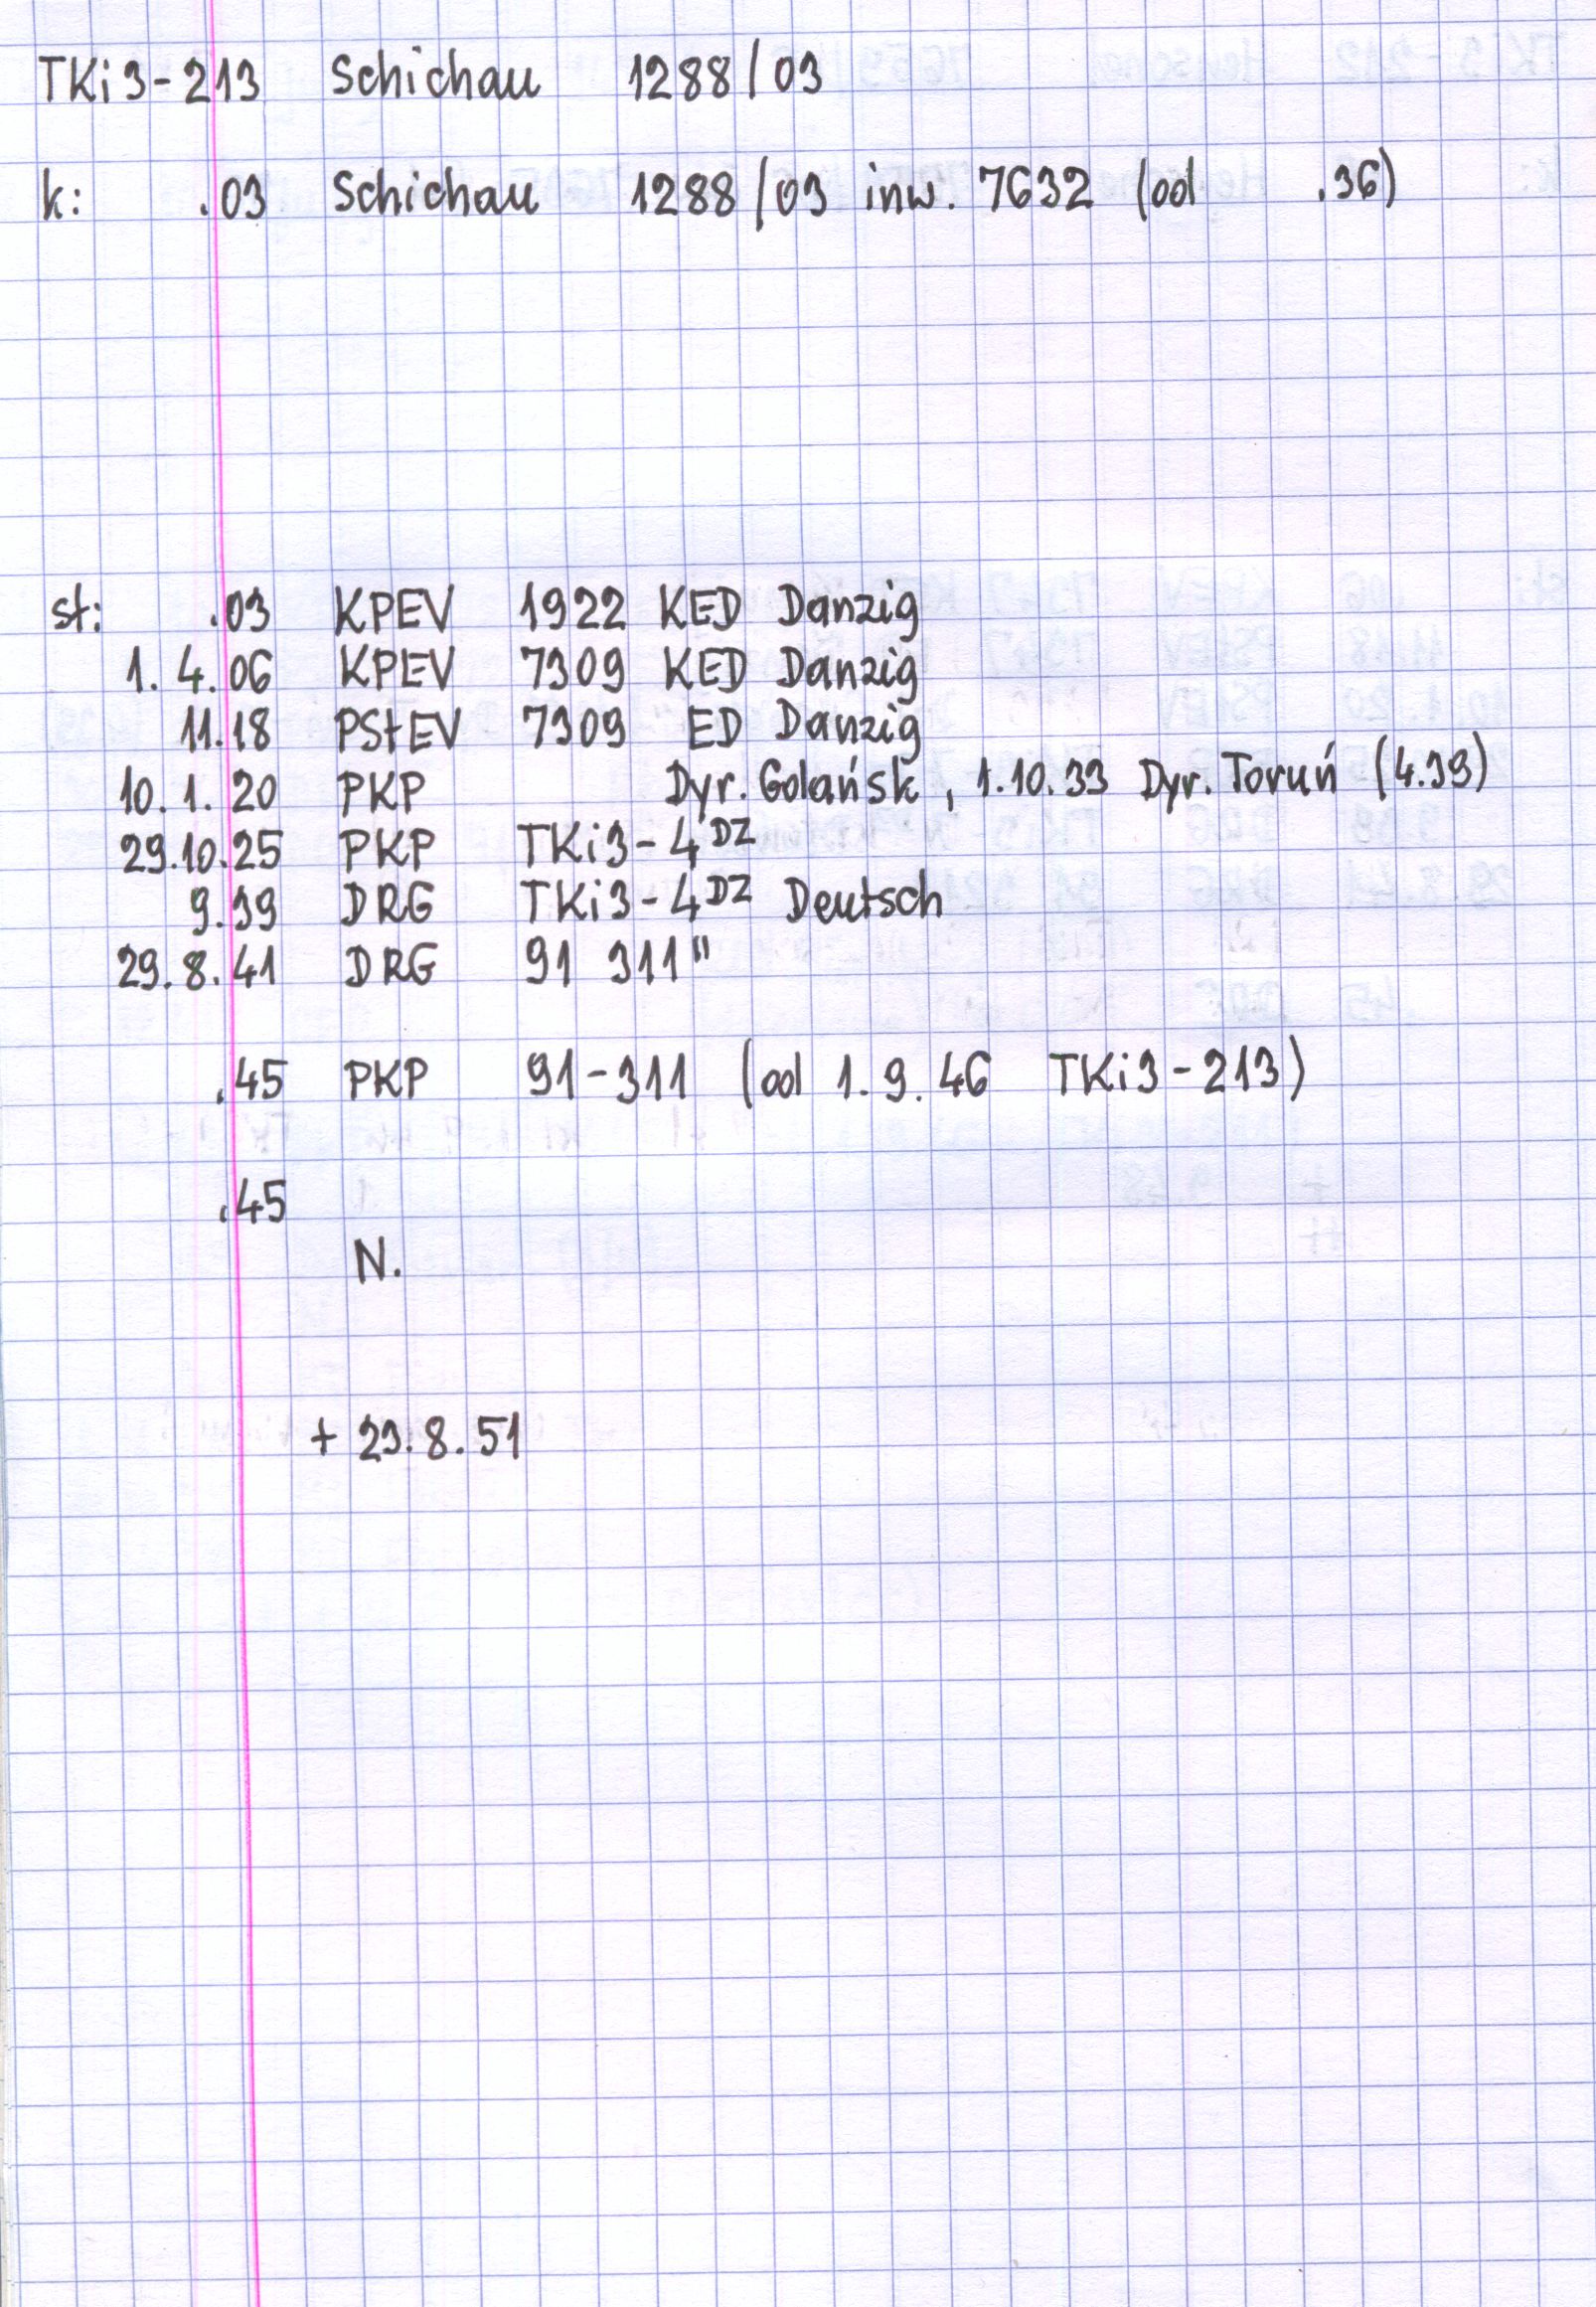 TKi3-213 Schichau 1288/03
k: .03 Schichau 1288/03 inw. 7632 (od .36)
st: .03 KPEV 1922 KED Danzig
1.4.06 KPEV 7309 KED Danzig
11.18 PStEV 7309 ED Danzig
10.1.20 PKP Dyr. Gdańsk, 1.10.33 Dyr. Toruń (4.39)
29.10.25 PKP TKi3-4DZ
9.39 DRG TKi3-4DZ Deutsch
29.8.41 DRG 91 311"
.45 PKP 91-311 (od 1.9.46 TKi3-213)
.45
N.
+ 29.8.51